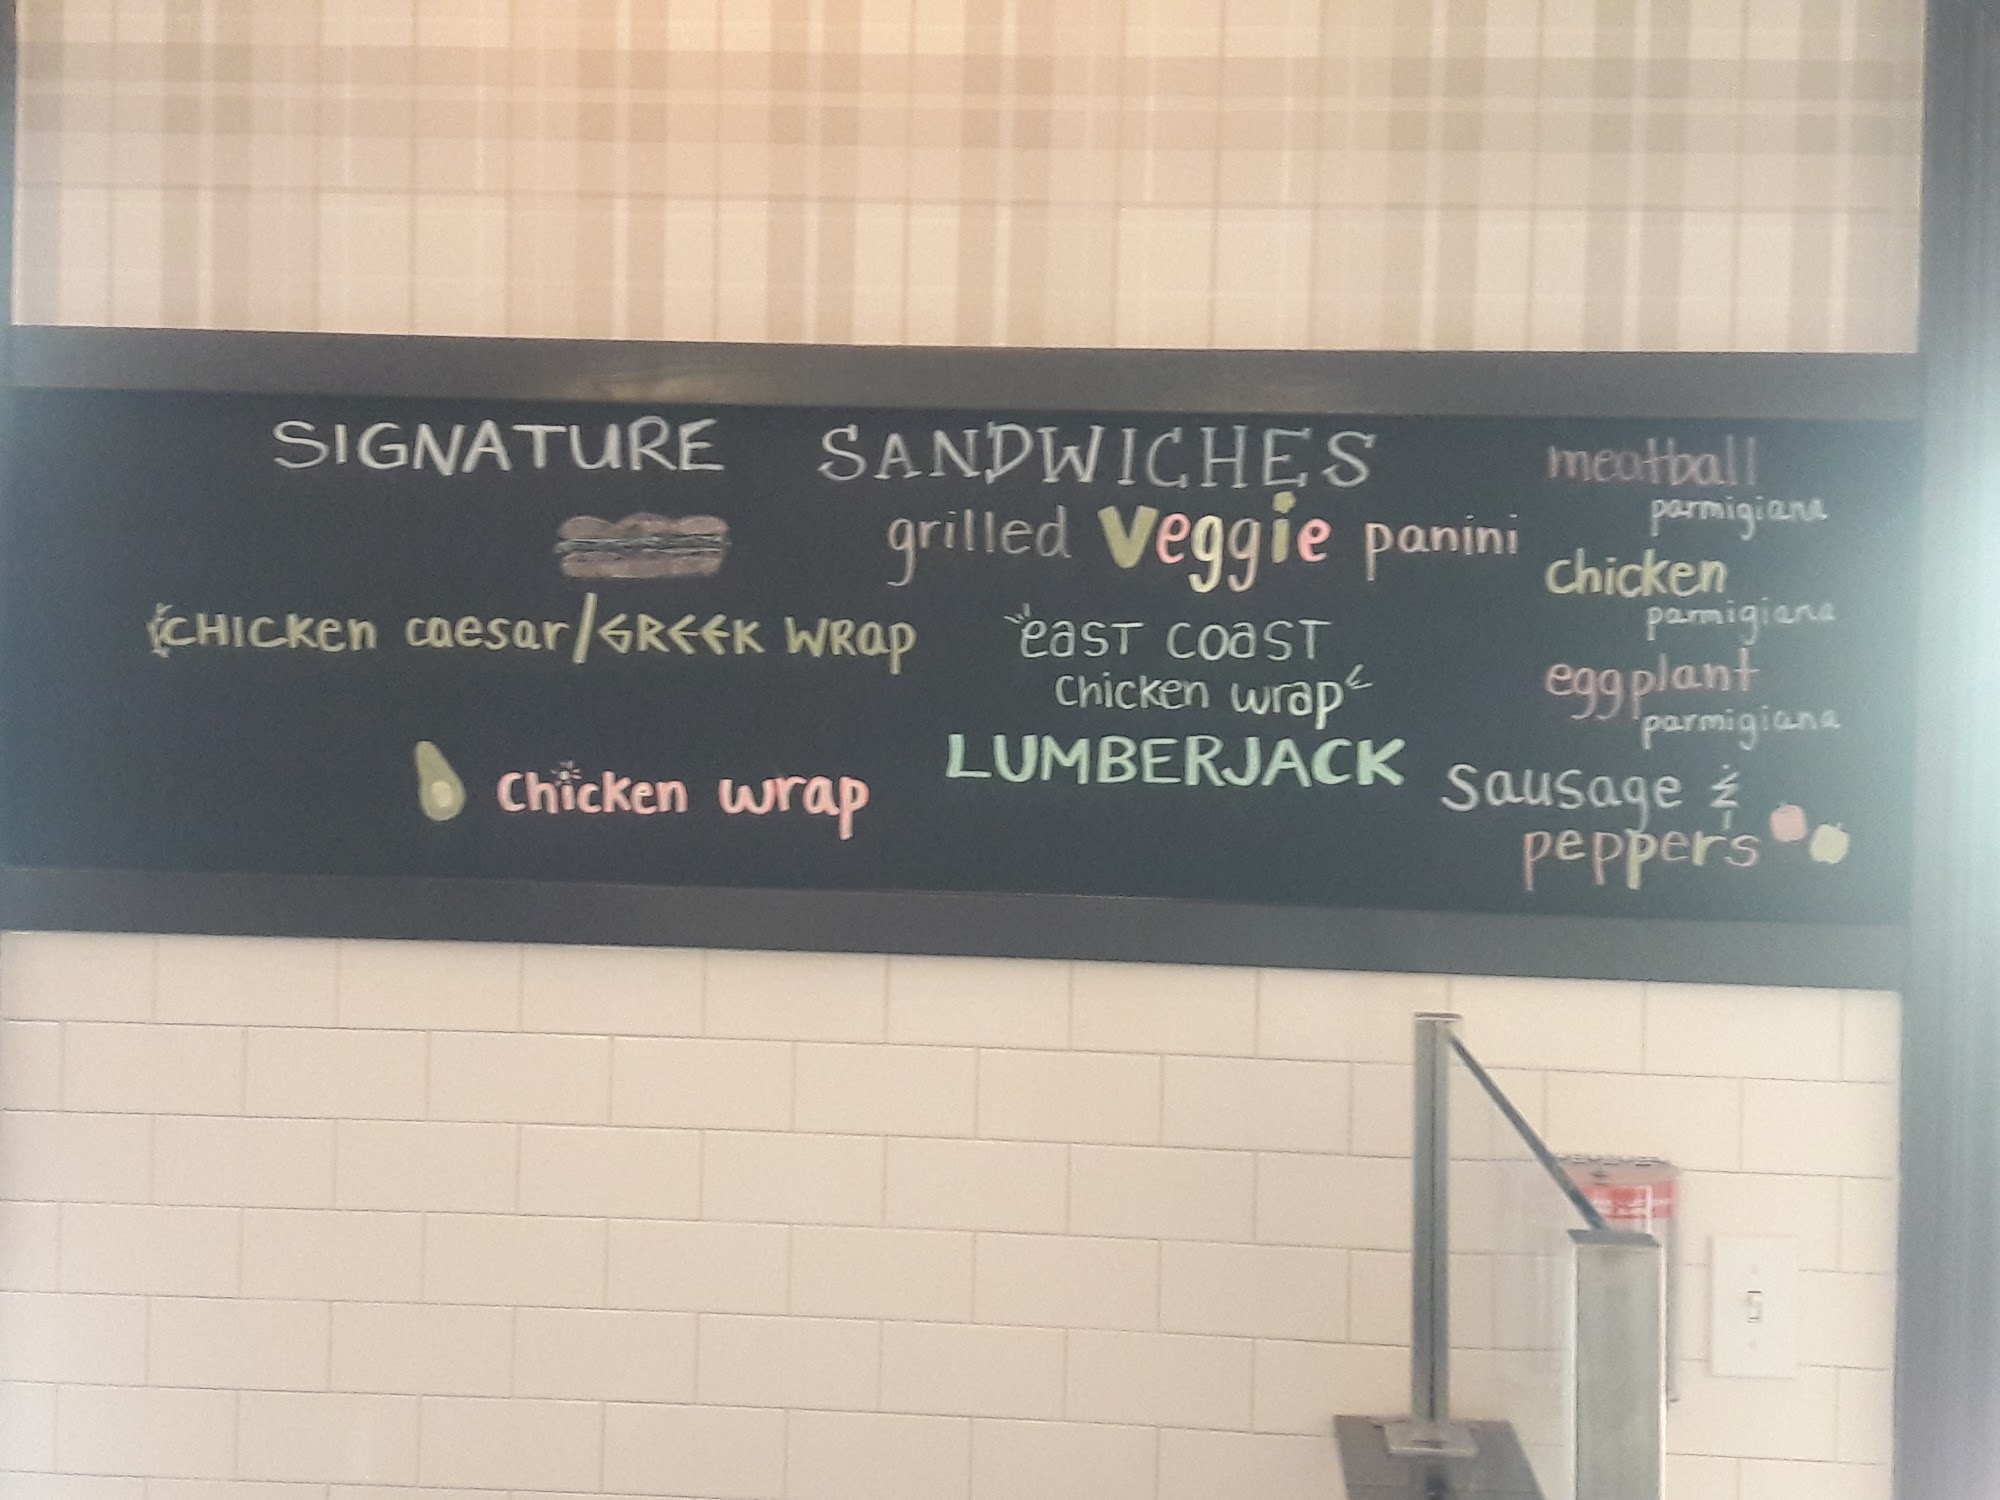 SIGNATURE SANDWICHES
grilled veggie panini
CHICKen caesar/GREEK WRap
east coast
chicken wrap
LUMBERJACK
chicken wrap
meatball
parmigiana
chicken
parmigiana
eggplant
parmigiana
sausage &
peppers